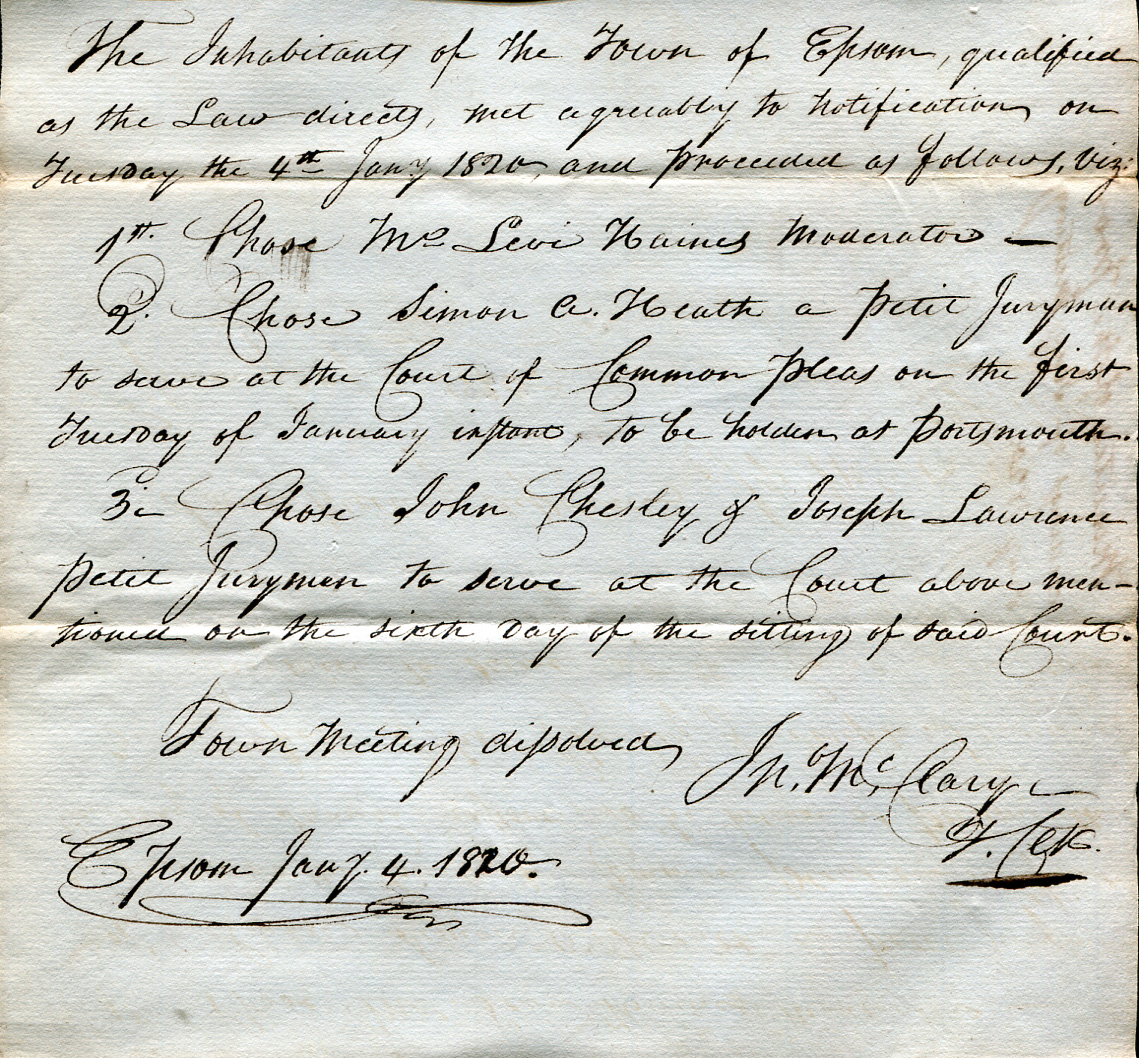 The Inhabitants of the Town of Epsom, qualified
as the Law directs, met agreeably to notification, on
Tuesday the 4th Jany 1820, and proceeded as follows, Viz:
1st. Chose Mr Levi Haines Moderator —
2. Chose Simon A. Heath a Petit Juryman
to serve at the Court of Common Pleas on the first
Tuesday of January instant, to be holden at Portsmouth.
3. Chose John Chesley & Joseph Lawrence
Petit Jurymen to serve at the Court above men-
tioned on the sixth Day of the sitting of said Court.
Town Meeting dissolved,
Jn. McClary
T. Clk.
Epsom Jany. 4. 1820.